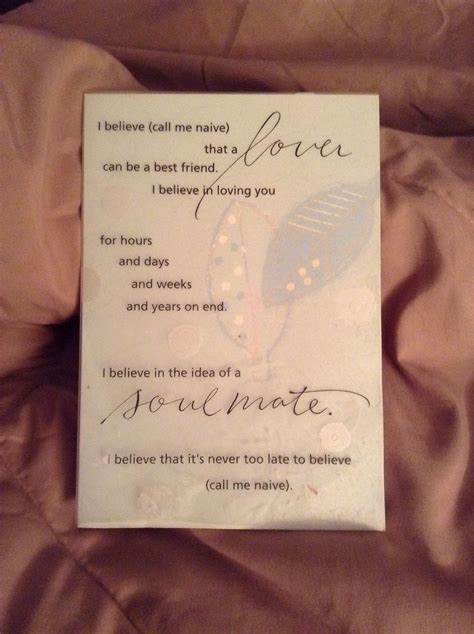 I believe (call me naive)
that a lover
can be a best friend.
I believe in loving you
for hours
and days
and weeks
and years on end.
I believe in the idea of a
soul mate.
I believe that it's never too late to believe
(call me naive).